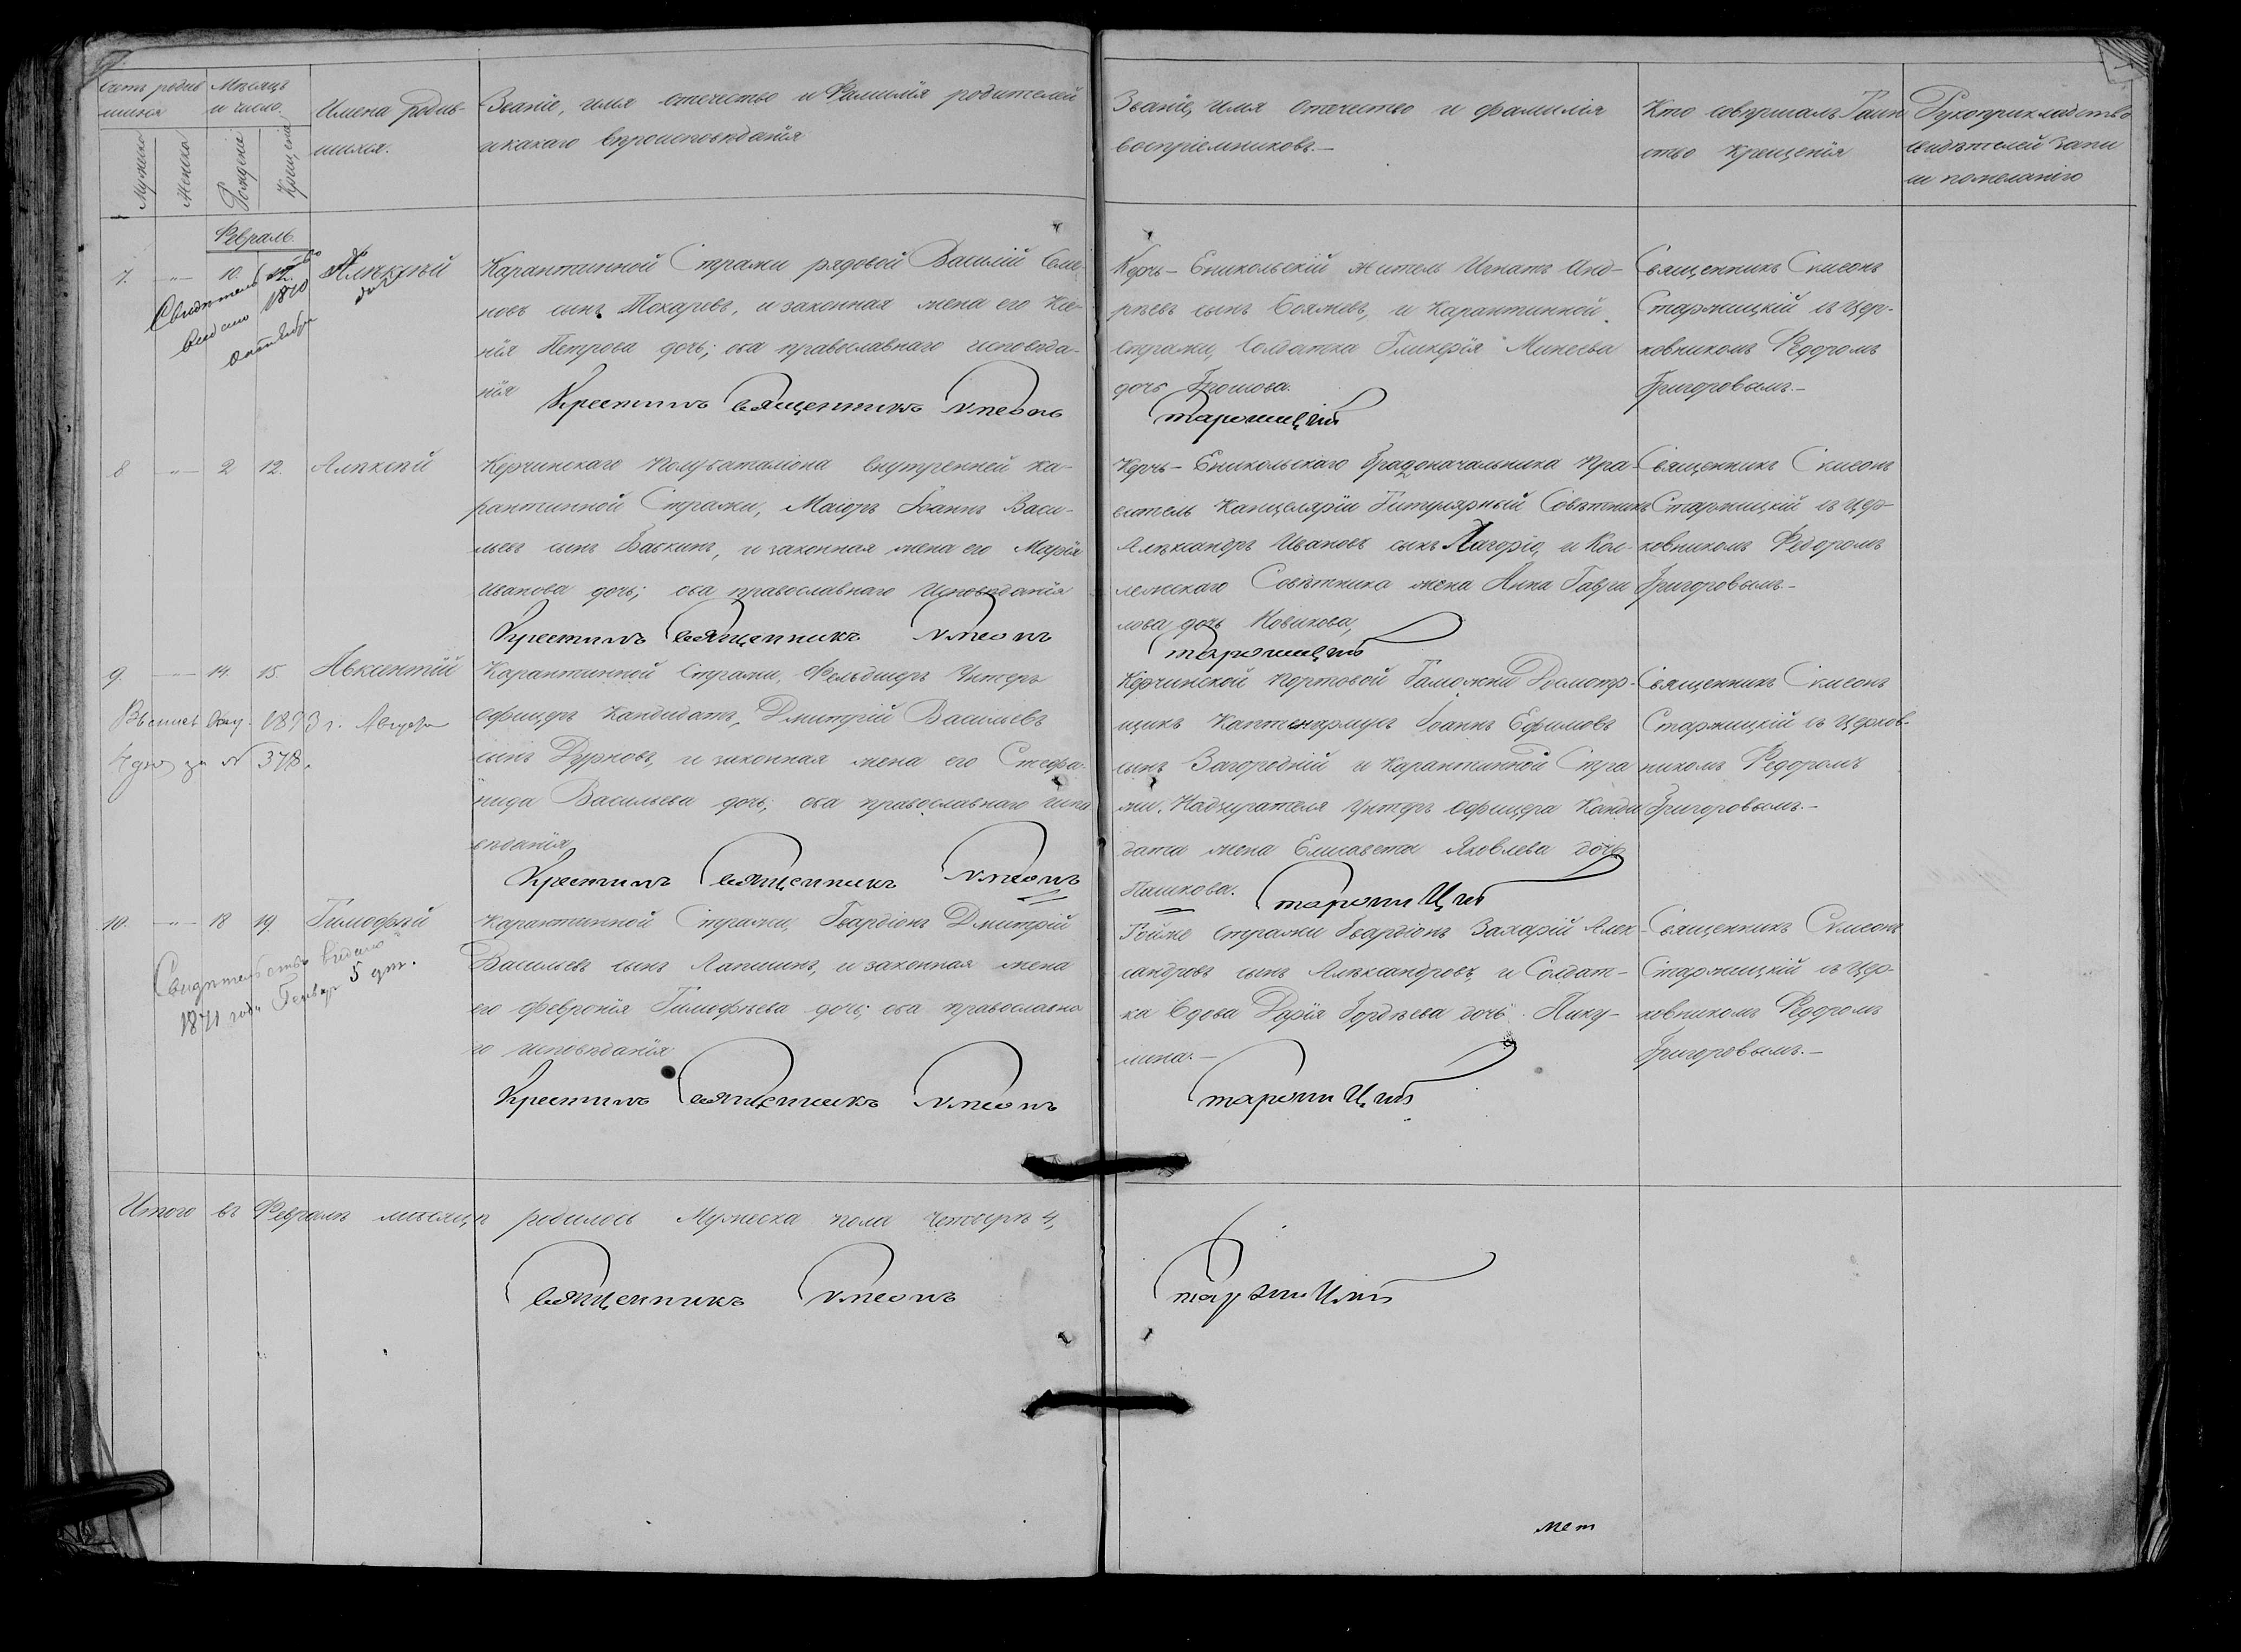 Счетъ родив
шихся
Мѣсяцъ
и число.
Мужеска
Женска
Рожденіе
Крещенія
Имена родив-
шихся.
Званіе, имя отечество и Фамилія родителей
и какаго вѣроисповѣданія
Званіе, имя отечество и фамилія
воспріемниковъ.—
Кто совершалъ Таин
ство крещенія
Рукоприкладство
свидѣтелей записи
по желанію
Февраль.
7. 10. 12. Алексѣй
Свидѣтельство
выдано 1870
Октября
Карантинной Стражи рядовой Василій Семе-
новъ сынъ Токаревъ, и законная жена его Ксе-
нія Петрова дочь; оба православнаго исповѣда-
нія
Крестилъ священникъ Симеонъ
Керчь-Еникольскій житель Игнатъ Анд-
рѣевъ сынъ Божевъ, и Карантинной
стражи, Солдатка Гликерія Михеева
дочь Ерошова.
Старжицкій
Священникъ Симеонъ
Старжицкій съ цер-
ковникомъ Ѳедоромъ
Григоровымъ.—
8 2 12. Алексѣй
Керчинскаго полубаталіона внутренней ка-
рантинной Стражи, Маіоръ Іоаннъ Васи-
льевъ сынъ Баскинъ, и законная жена его Марія
Иванова дочь; оба православнаго исповѣданія
Крестилъ священникъ Симеонъ
Керчь-Еникольскаго Градоначальника Пра-
витель Канцеляріи Титулярный Совѣтникъ
Александръ Ивановъ сынъ Лагоріо, и Кол-
лежскаго Совѣтника жена Анна Гаври
лова дочь Новикова,
Старжицкій
Священникъ Симеонъ
Старжицкій съ цер-
ковникомъ Ѳедоромъ
Григоровымъ.—
9. 14. 15. Авксентій
1873 г. Августа
4 дня за № 378.
Карантинной Стражи, Фельдшеръ Унтеръ
офицеръ Кандидатъ, Дмитрій Васильевъ
сынъ Дурновъ, и законная жена его Стефа-
нида Васильева дочь; оба православнаго испо
вѣданія
Крестилъ священникъ Симеонъ
Керчинской портовой Таможни Досмотр-
щикъ Каптенармусъ Іоаннъ Ефимовъ
сынъ Загородній и Карантинной Стра
жи, Надзирателя Унтеръ офицера Канди
дата жена Елисавета Яковлева дочь
Пашкова.
Старжицкій
Священникъ Симеонъ
Старжицкій съ церков-
никомъ Ѳедоромъ
Григоровымъ.—
10. 18 19. Тимофѣй
Свидѣтельство выдано
1871 года Генвар 5 дня.
Карантинной Стражи, Гвардіонъ Дмитрій
Васильевъ сынъ Лапшинъ, и законная жена
его Февронія Тимофѣева дочь; оба православна
го исповѣданія
Крестилъ священникъ Симеонъ
Тойже стражи Гвардіонъ Захарій Алек-
сандровъ сынъ Александровъ, и Солдат-
ка Вдова Дарія Гордѣева дочь Пику-
лина.—
Старжицкій
Священникъ Симеонъ
Старжицкій съ цер-
ковникомъ Ѳедоромъ
Григоровымъ.—
Итого въ Февралѣ мѣсяцѣ родилось Мужеска пола четыре 4,
Священникъ Симеонъ
Старжицкій